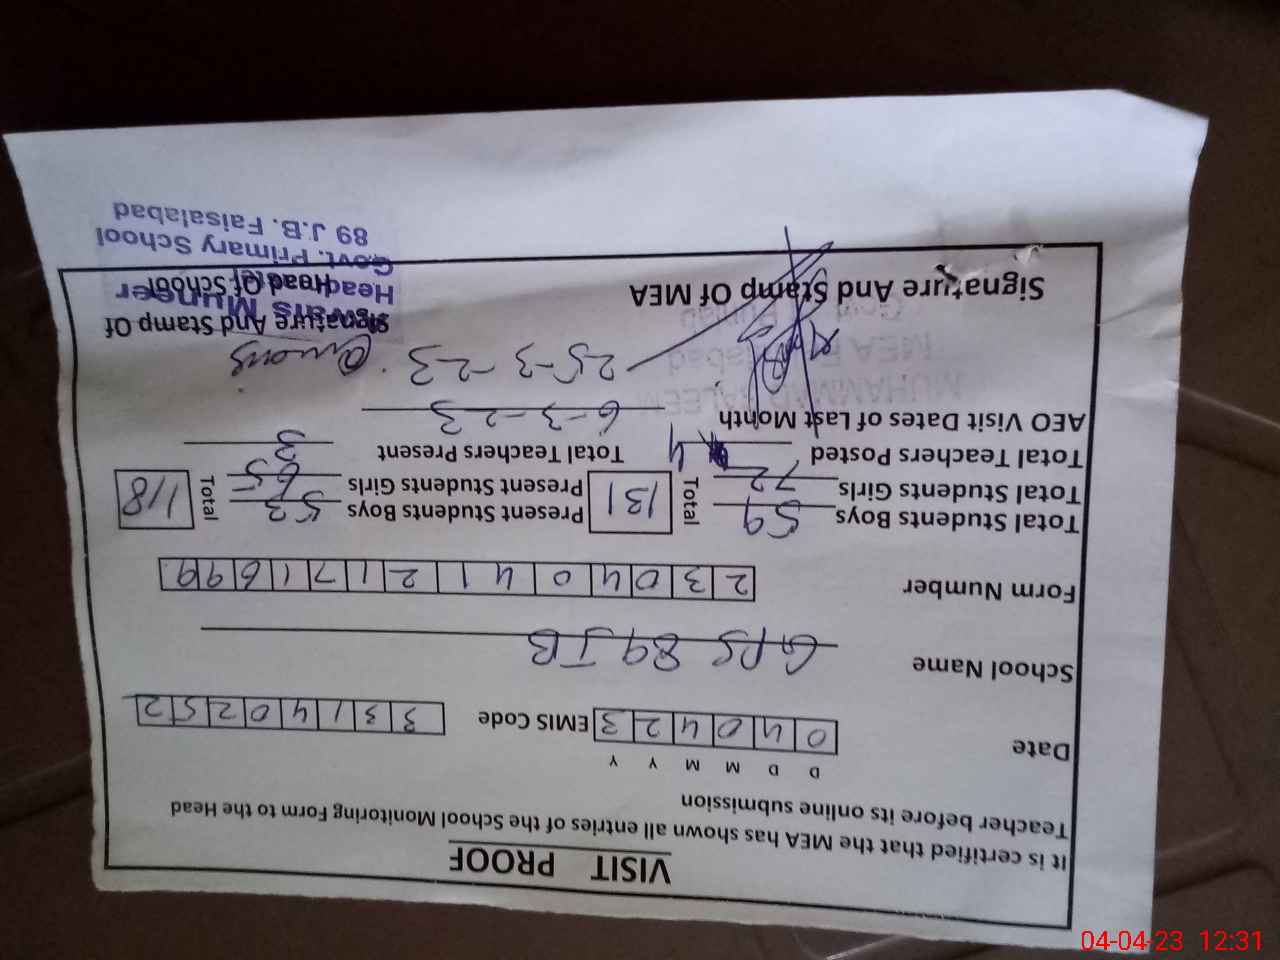 VISIT PROOF
It is certified that the MEA has shown all entries of the School Monitoring Form to the Head
Teacher before its online submission
D D M M Y Y
Date 0 4 0 4 2 3 EMIS Code 3 3 1 4 0 2 5 2
School Name GPS 89 JB
Form Number 2 3 0 4 0 4 1 2 1 7 1 6 9 9
Total Students Boys 59 Total 131 Present Students Boys 53 Total 118
Total Students Girls 72 Present Students Girls 65
Total Teachers Posted 4 Total Teachers Present 3
AEO Visit Dates of Last Month 6-3-23
25-3-23
MUHAMMAD SALEEM
MEA
Signature And Stamp Of MEA
Signature And Stamp Of
Head Of School
Muneer
Head
Govt. Primary School
89 J.B. Faisalabad
04-04-23 12:31